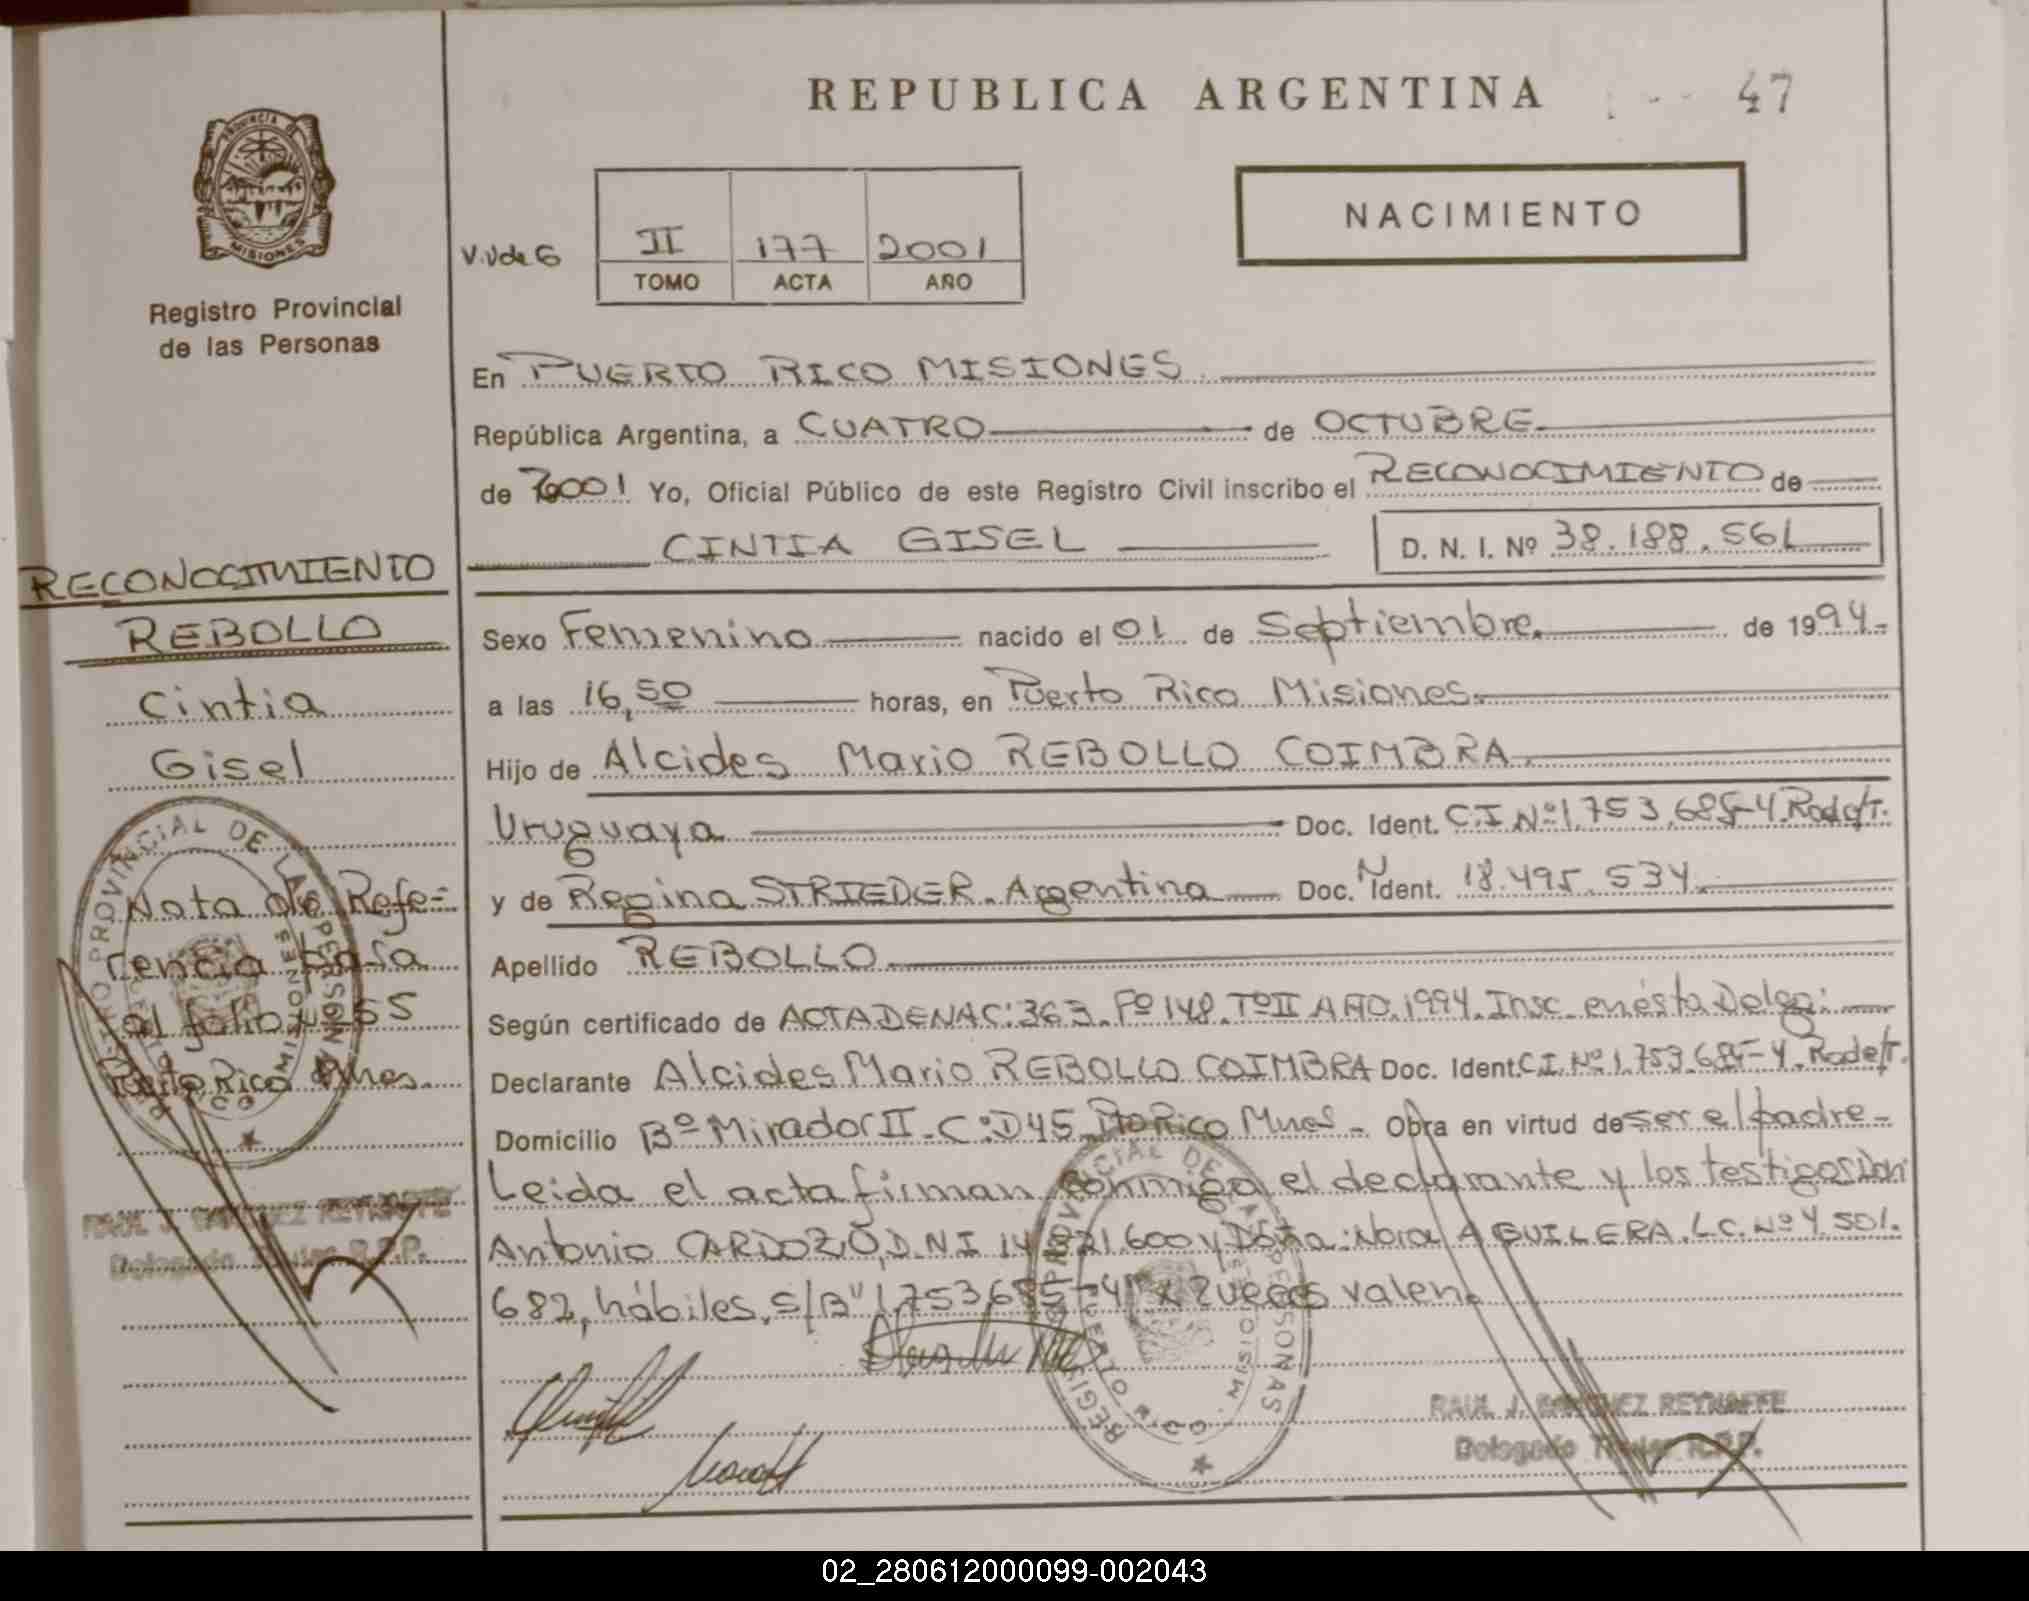 REPUBLICA ARGENTINA
47
PROVINCIA DE
MISIONES
Registro Provincial
de las Personas
V.Vde G
II 177 2001
TOMO ACTA AÑO
NACIMIENTO
En PUERTO RICO MISIONES
República Argentina, a CUATRO de OCTUBRE
de 2001 Yo, Oficial Público de este Registro Civil inscribo el RECONOCIMIENTO de
CINTIA GISEL D. N. I. Nº 38.188.561
Sexo Femenino nacido el 01 de Septiembre. de 1994-
a las 16,50 horas, en Puerto Rico Misiones.
Hijo de Alcides Mario REBOLLO COIMBRA
Uruguaya Doc. Ident. C.I Nº 1.753.685-4.
y de Regina STRIEDER. Argentina Doc. N Ident. 18.495.534.
Apellido REBOLLO
Según certificado de ACTA DE NAC: 363. Fº 148. Tº II AÑO. 1994. Insc. en ésta Delg:
Declarante Alcides Mario REBOLLO COIMBRA Doc. Ident. C.I. Nº 1.753.685-4.
Domicilio Bº Mirador II. C: D45 Pto Rico Mnes - Obra en virtud de ser el padre-
Leida el acta firman conmigo el declarante y los testigos Don
Antonio CARDOZO, D.N.I 14.821.600 y Doña: Nora AGUILERA. L.C. Nº 4.501.
682, hábiles. S/B "1.753.685-4" x 2 veces valen.
RECONOCIMIENTO
REBOLLO
Cintia
Gisel
Nota de Refe=
rencia para
al folio 155
Puerto Rico Mnes.
REGISTRO PROVINCIAL DE LAS PERSONAS
PUERTO RICO
MISIONES
RAUL J. SANCHEZ REYNAFFE
Delegado Titular R.P.P.
REGISTRO PROVINCIAL DE LAS PERSONAS
PUERTO RICO
MISIONES
RAUL J. SANCHEZ REYNAFFE
Delegado Titular R.P.P.
02_280612000099-002043